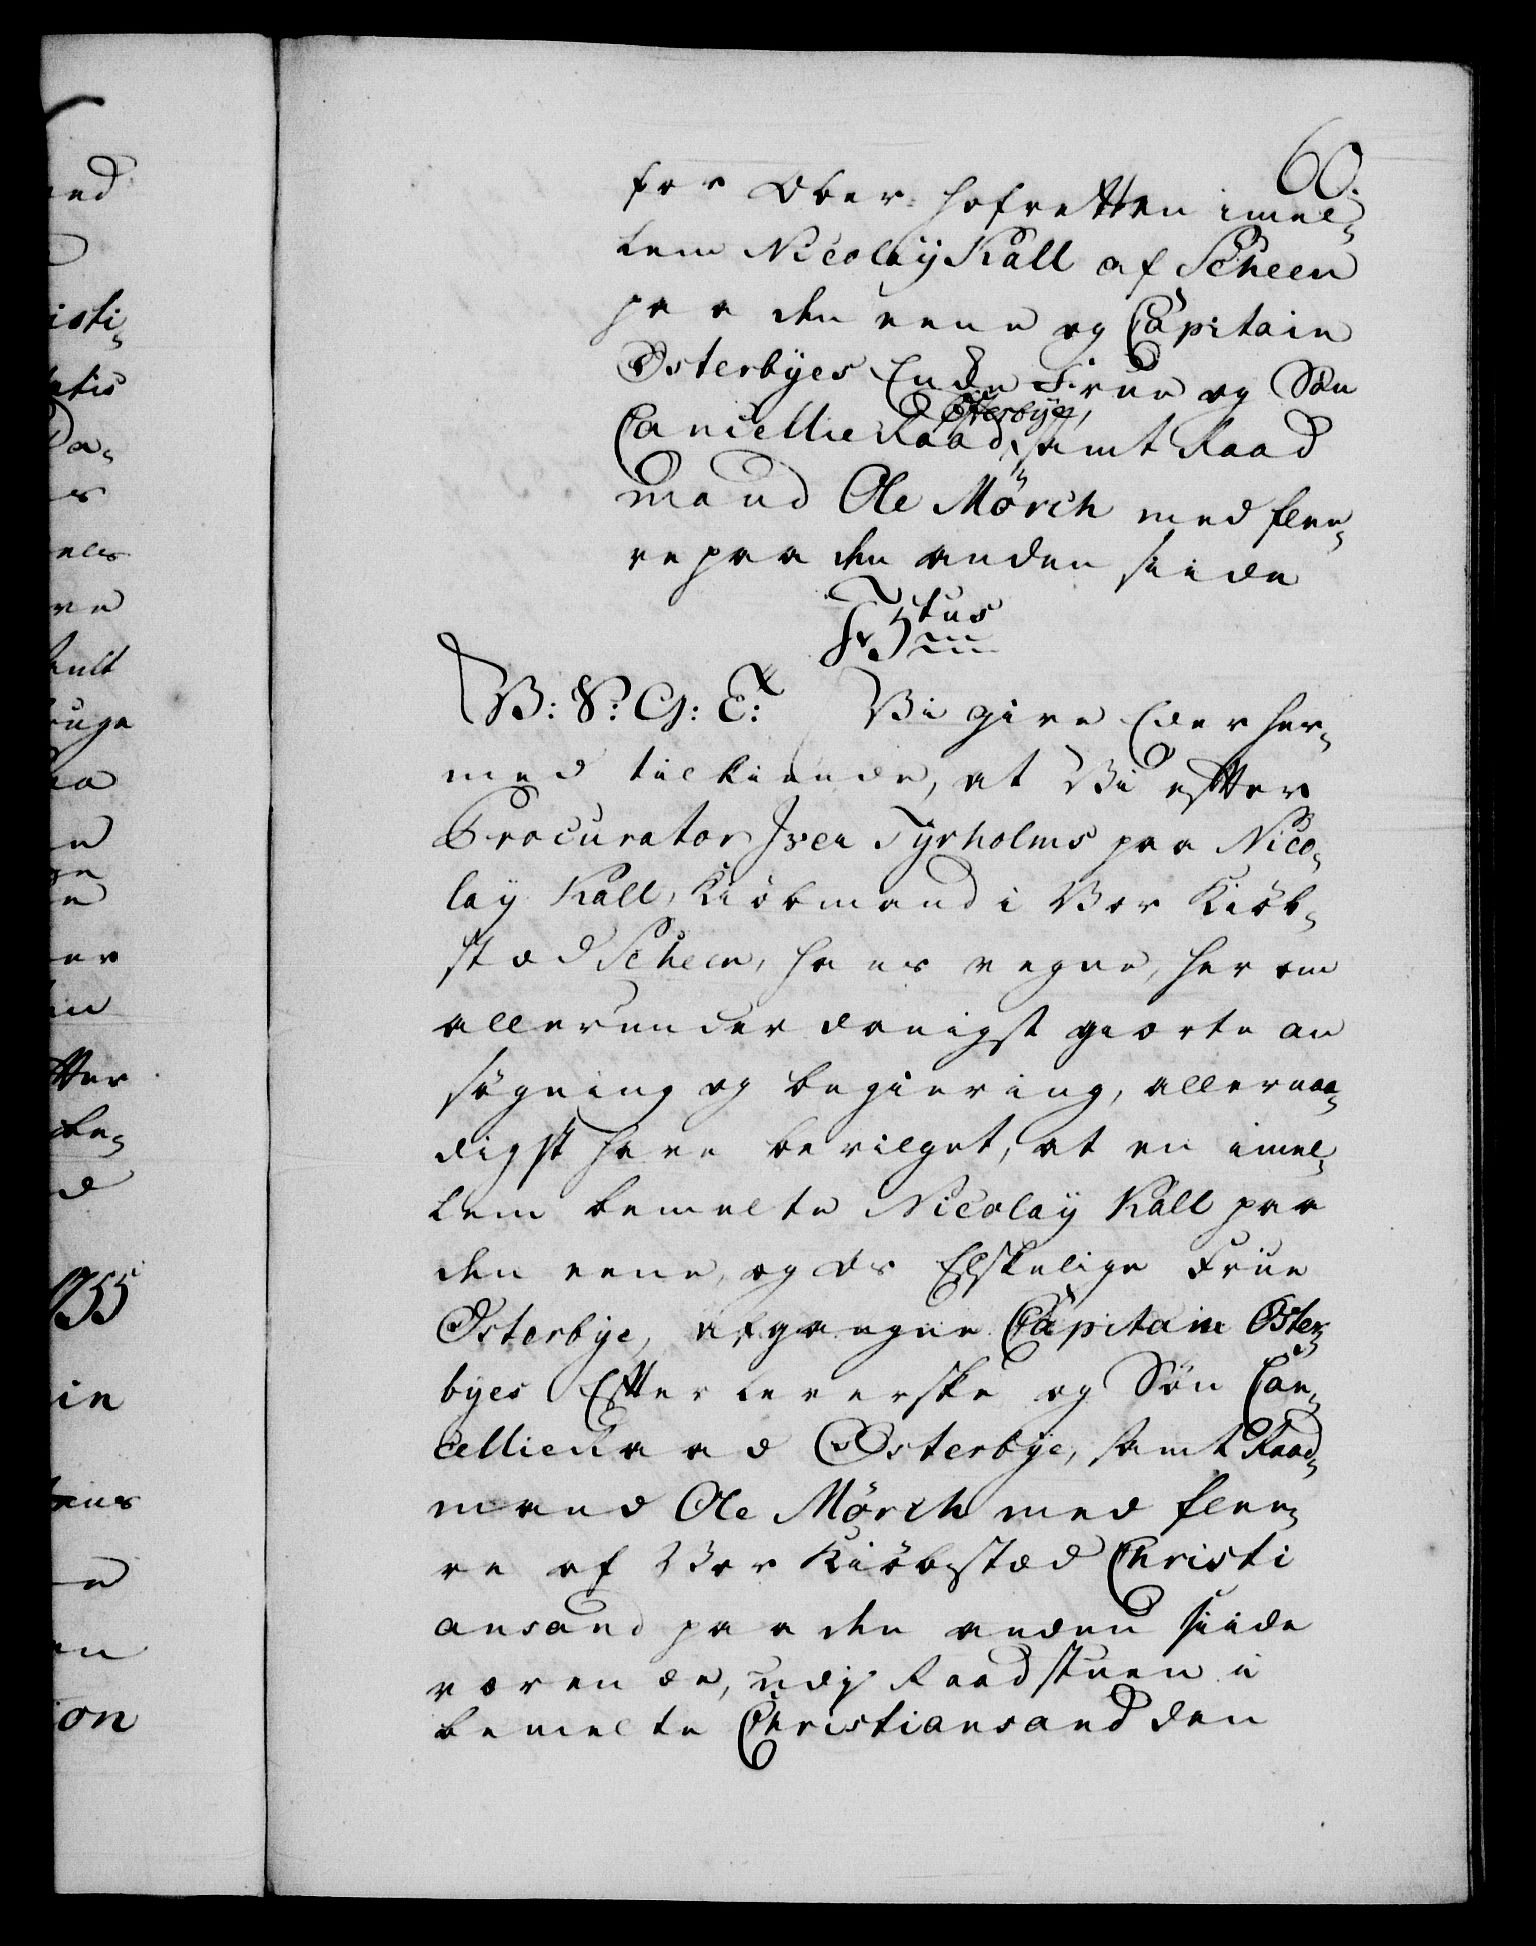 60.
for Ober-hofretten imel-
lem Nicolaÿ Kall af Scheen
paa den eene og Capitain
Østerbÿes Encke Frue og Søn
Cancellie Raad Østerbÿe, samt Raad
mand Ole Mörch med flee-
re paa den anden siide
F5tus
B: V: G: T: Vi give Eder her-
med tilkiende, at Vi efter
Procurator Iver Tyrholms paa Nico-
laÿ Kall, Kiöbmand i Vor Kiöb-
stæd Scheen, hans vegne, her om
allerunderdanigst giorte an
søgning og begiering, allernaa-
digst have bevilget, at en imel-
lem bemelte Nicolaÿ Kall paa
den eene, og os Elskelige Frue
Østerbÿe, afgangne Capitain Øster-
byes Efterleverske og Søn Can-
cellieRaad Østerbÿe, samt Raad-
mand Ole Mörch med flee-
re af Vor Kiöbstæd Christi
ansand paa den anden siide
værende, udj Raadstuen i
bemelte Christiansand den
isti-
Da-
ault
ruge
1755
in
ion